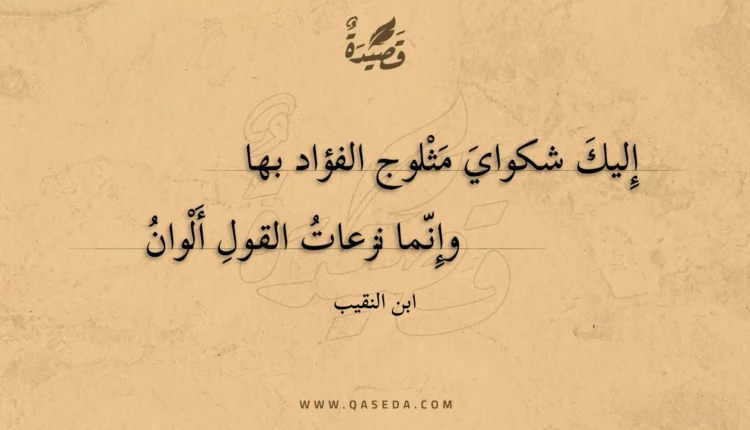 قَصِيْدَةٌ
إِليكَ شكوايَ مَثْلوج الفؤاد بها
وإِنّما نزعاتُ القولِ أَلْوانُ
ابن النقيب
WWW.QASEDA.COM